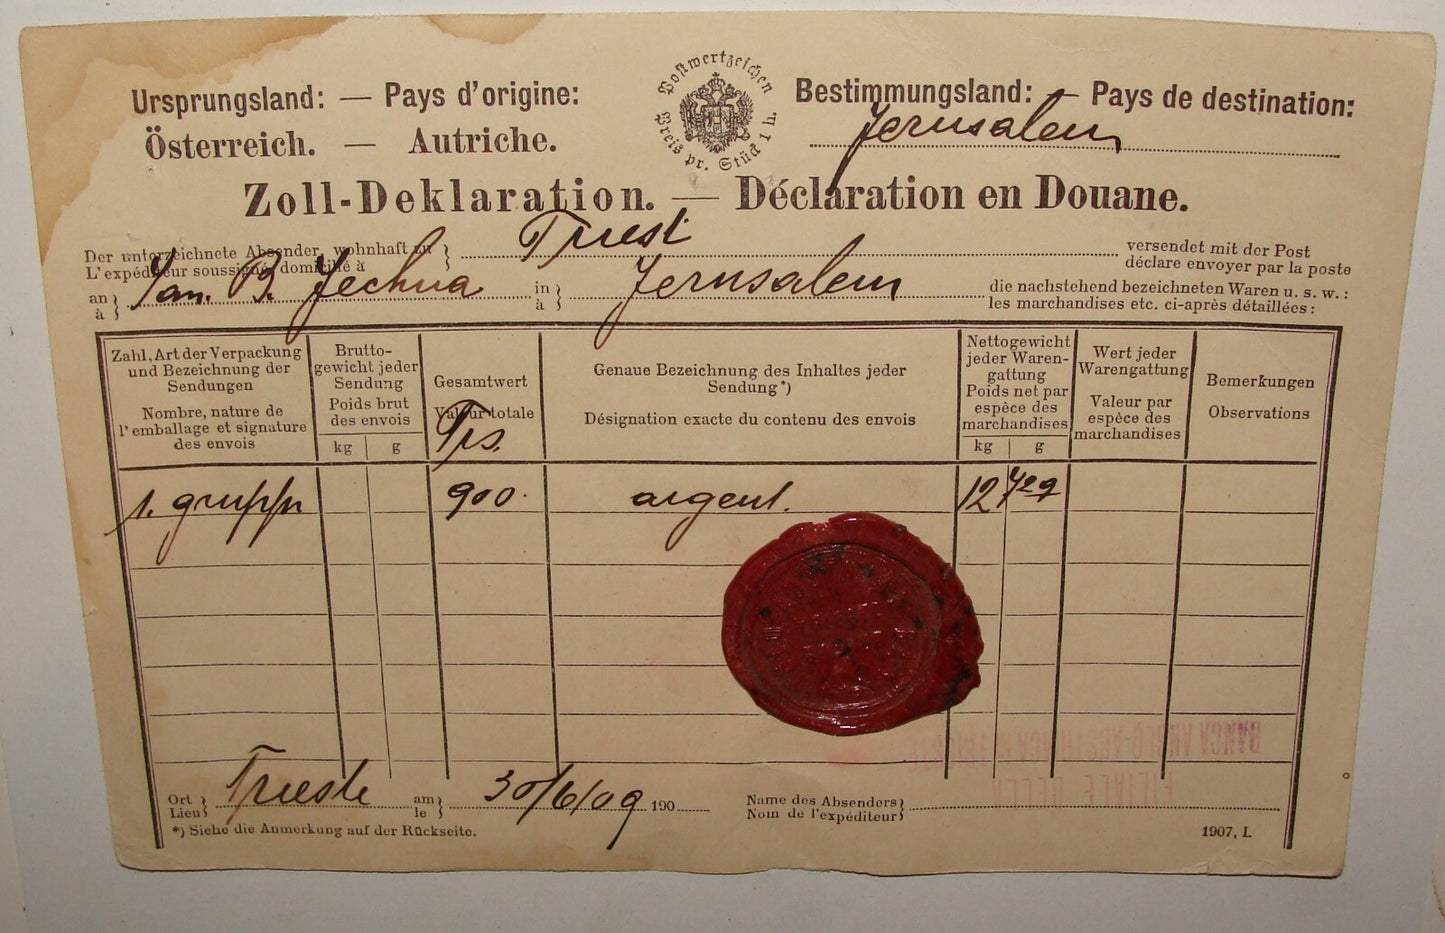 Ursprungsland: — Pays d'origine:
Österreich. — Autriche.
Postwertzeichen
Preis pr. Stück 1 h.
Bestimmungsland: — Pays de destination:
Jerusalem
Zoll-Deklaration. — Déclaration en Douane.
Der unterzeichnete Absender, wohnhaft zu } Triest versendet mit der Post
L'expéditeur soussigné, domicilié à déclare envoyer par la poste
an } Jechua in } Jerusalem die nachstehend bezeichneten Waren u. s. w.:
à à les marchandises etc. ci-après détaillées:
Zahl, Art der Verpackung
und Bezeichnung der
Sendungen
Nombre, nature de
l'emballage et signature
des envois
Brutto-
gewicht jeder
Sendung
Poids brut
des envois
kg g
Gesamtwert
Valeur totale
Genaue Bezeichnung des Inhaltes jeder
Sendung*)
Désignation exacte du contenu des envois
Nettogewicht
jeder Waren-
gattung
Poids net par
espèce des
marchandises
kg g
Wert jeder
Warengattung
Valeur par
espèce des
marchandises
Bemerkungen
Observations
1. 900. argent. 12 729
BANCA ANGLO-AUSTRIACA
FILIALE DELLA
Ort } Trieste am } 30/6/09 190 Name des Absenders }
Lieu le Nom de l'expéditeur
*) Siehe die Anmerkung auf der Rückseite.
1907, I.